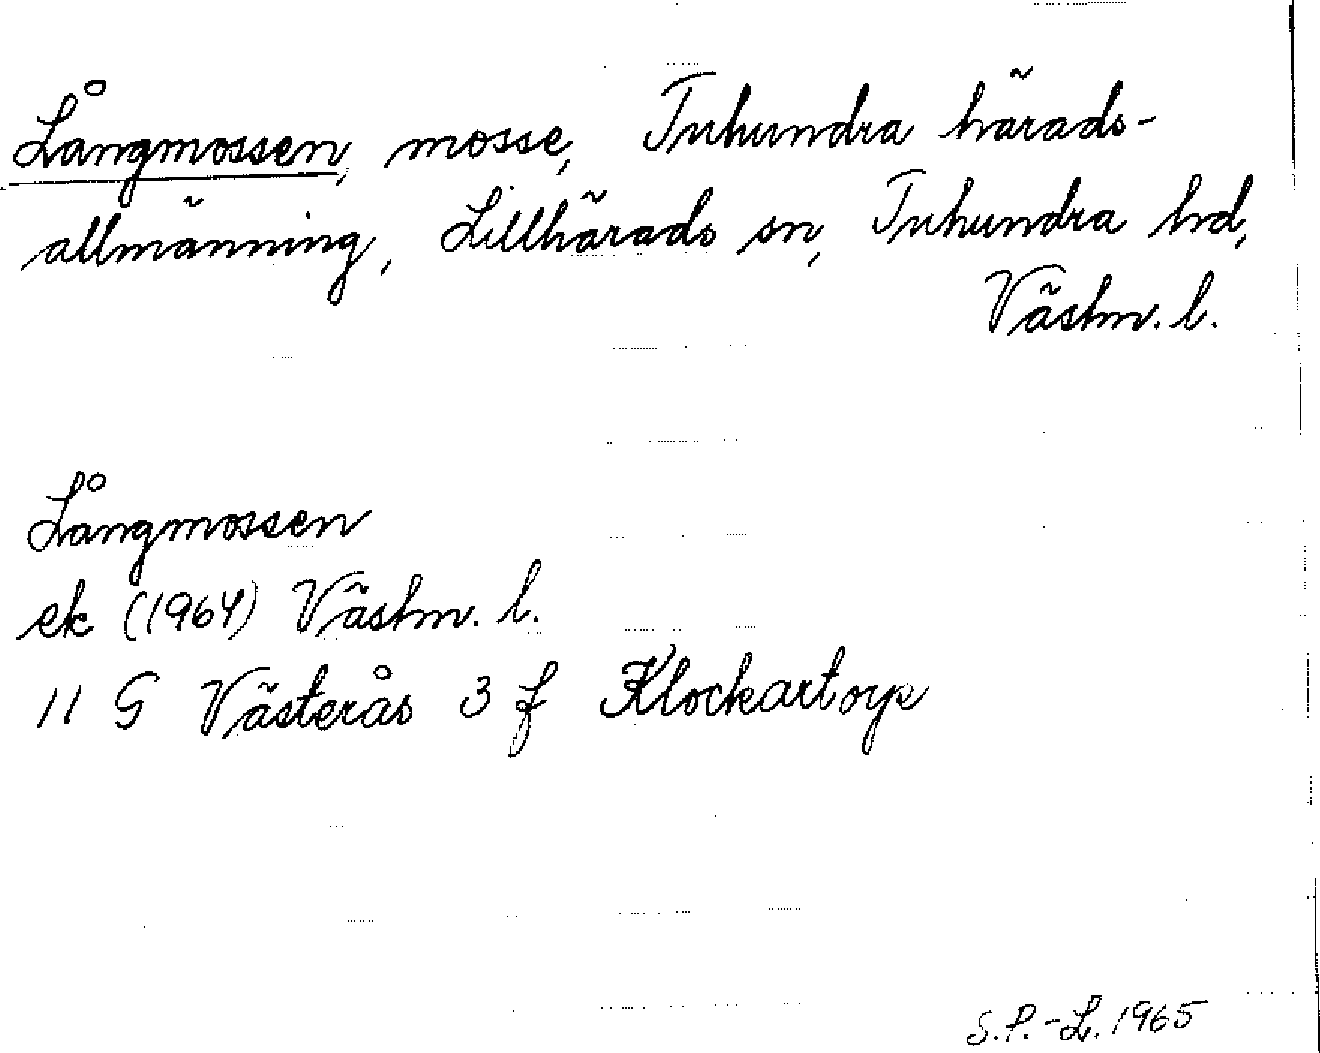 Långmossen, mosse, Tuhundra härads-
allmänning, Lillhärads sn, Tuhundra hd,
Västm. l.
Långmossen
ek (1964) Västm. l.
11 G Västerås 3 f Klockartorp
S.P.-L. 1965